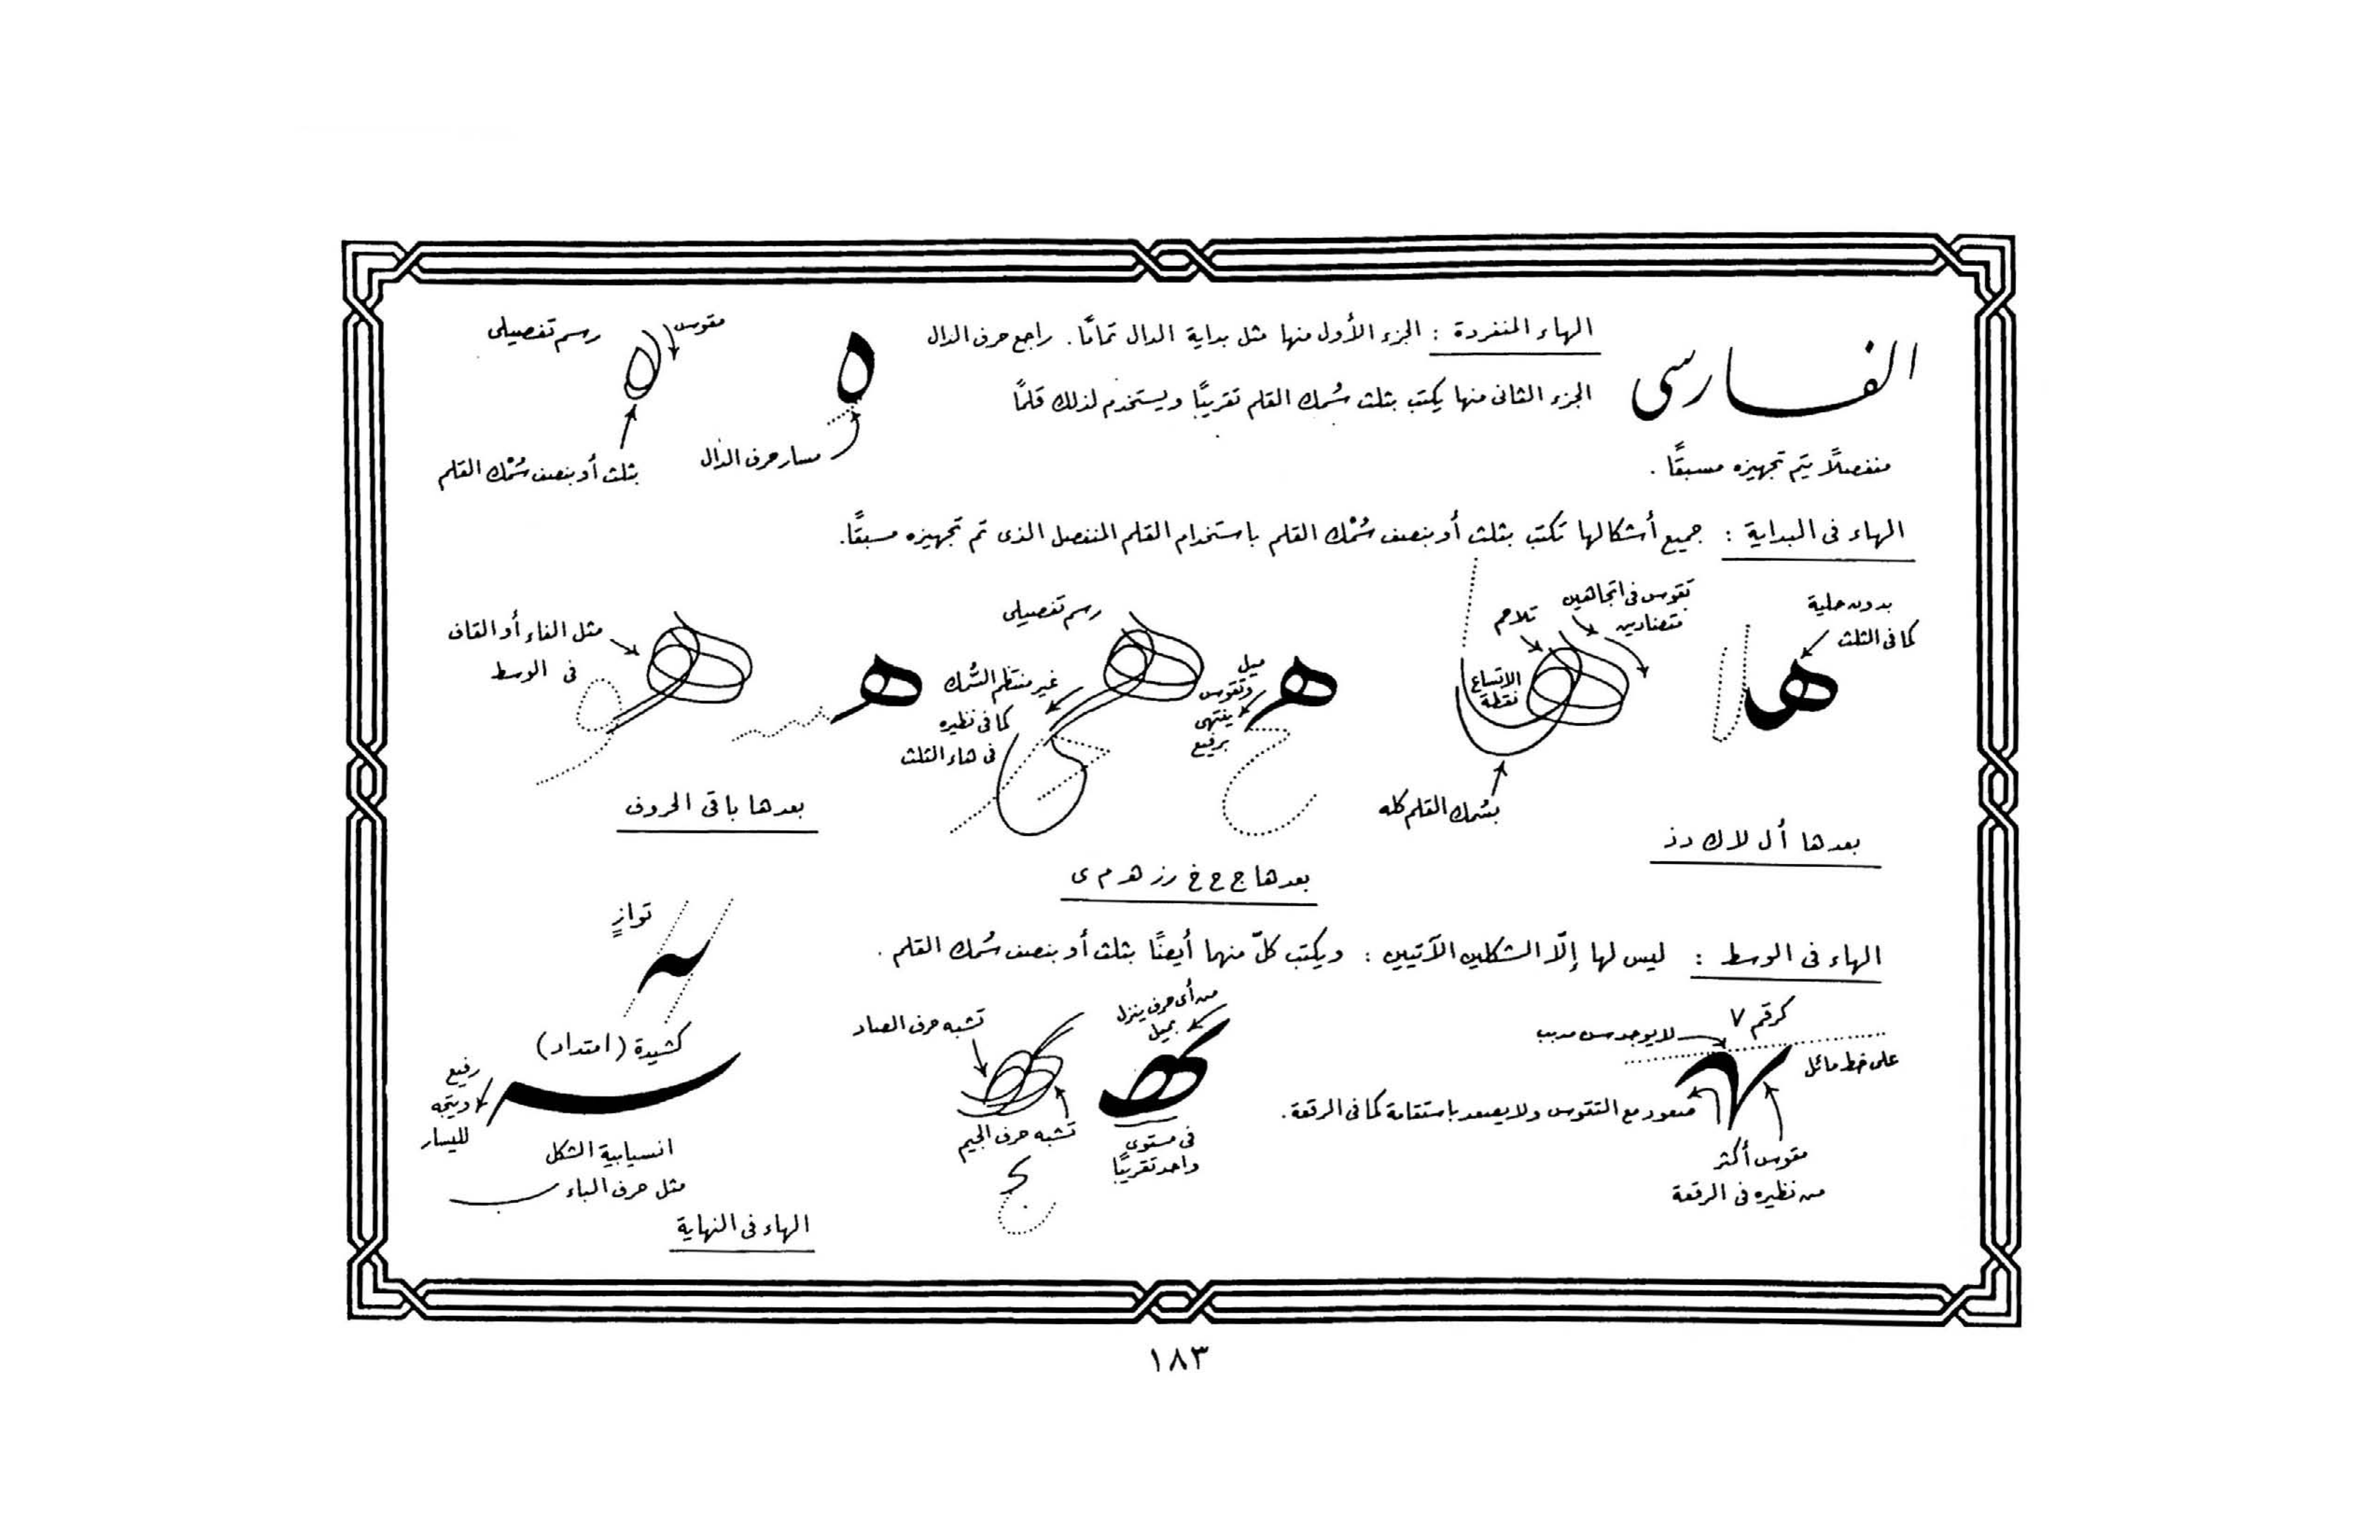 الفارسى
الهاء المنفردة : الجزء الأول منها مثل بداية الدال تمامًا. راجع حرف الدال
الجزء الثانى منها يكتب بثلث سُمك القلم تقريبًا ويستخدم لذلك قلمًا
منفصلًا يتم تجهيزه مسبقًا .
مقوس
رسم تفصيلى
مسار حرف الدال
بثلث أو بنصف سُمْك القلم
الهاء فى البداية : جميع أشكالها تكتب بثلث أو بنصف سُمْك القلم باستخدام القلم المنفصل الذى تم تجهيزه مسبقًا.
بدون حلية
كما فى الثلث
ها
تقوس فى اتجاهين
متضادين
تلاحم
الاتساع
نقطة
بسُمك القلم كله
بعدها أ ل لا ك د ذ
رسم تفصيلى
ميل
وتقوس
ينتهى
برفيع
غير منتظم السُّمك
كما فى نظيره
فى هاء الثلث
بعدها ج ح خ ر ز هـ م ى
مثل الفاء أو القاف
فى الوسط
بعدها باقى الحروف
الهاء فى الوسط : ليس لها إلّا الشكلين الآتيين : ويكتب كلّ منهما أيضًا بثلث أو بنصف سُمك القلم .
كرقم ٧
على خط مائل
لا يوجد سن مدبب
صعود مع التقوس ولا يصعد باستقامة كما فى الرقعة .
مقوس أكثر
من نظيره فى الرقعة
من أى حرف ينزل
بميل
تشبه حرف الصاد
تشبه حرف الجيم
فى مستوى
واحد تقريبًا
توازٍ
كشيدة (امتداد)
رفيع
ويتجه
لليسار
انسيابية الشكل
مثل حرف الباء
الهاء فى النهاية
١٨٣